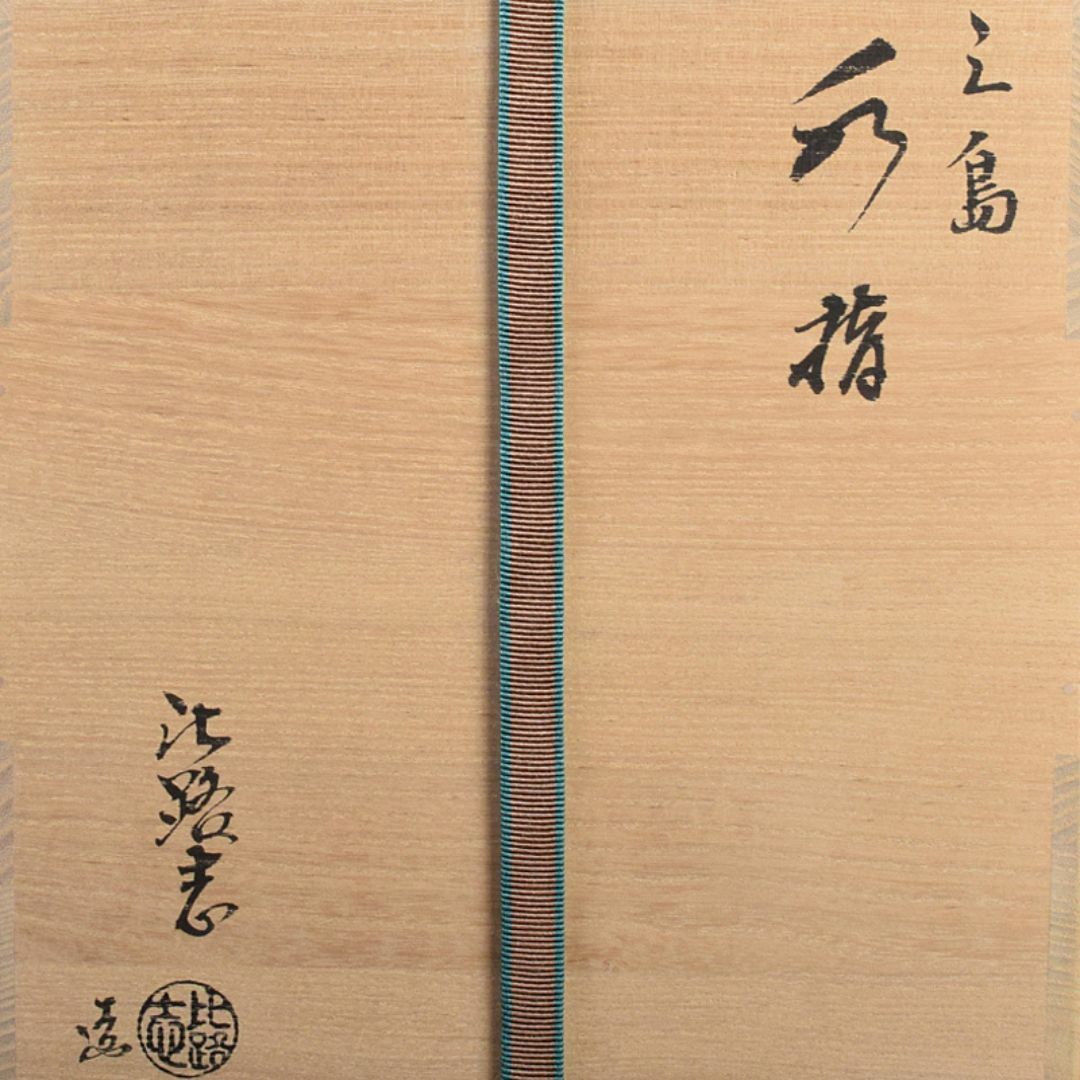 三島
水指
比路志
比路志
造